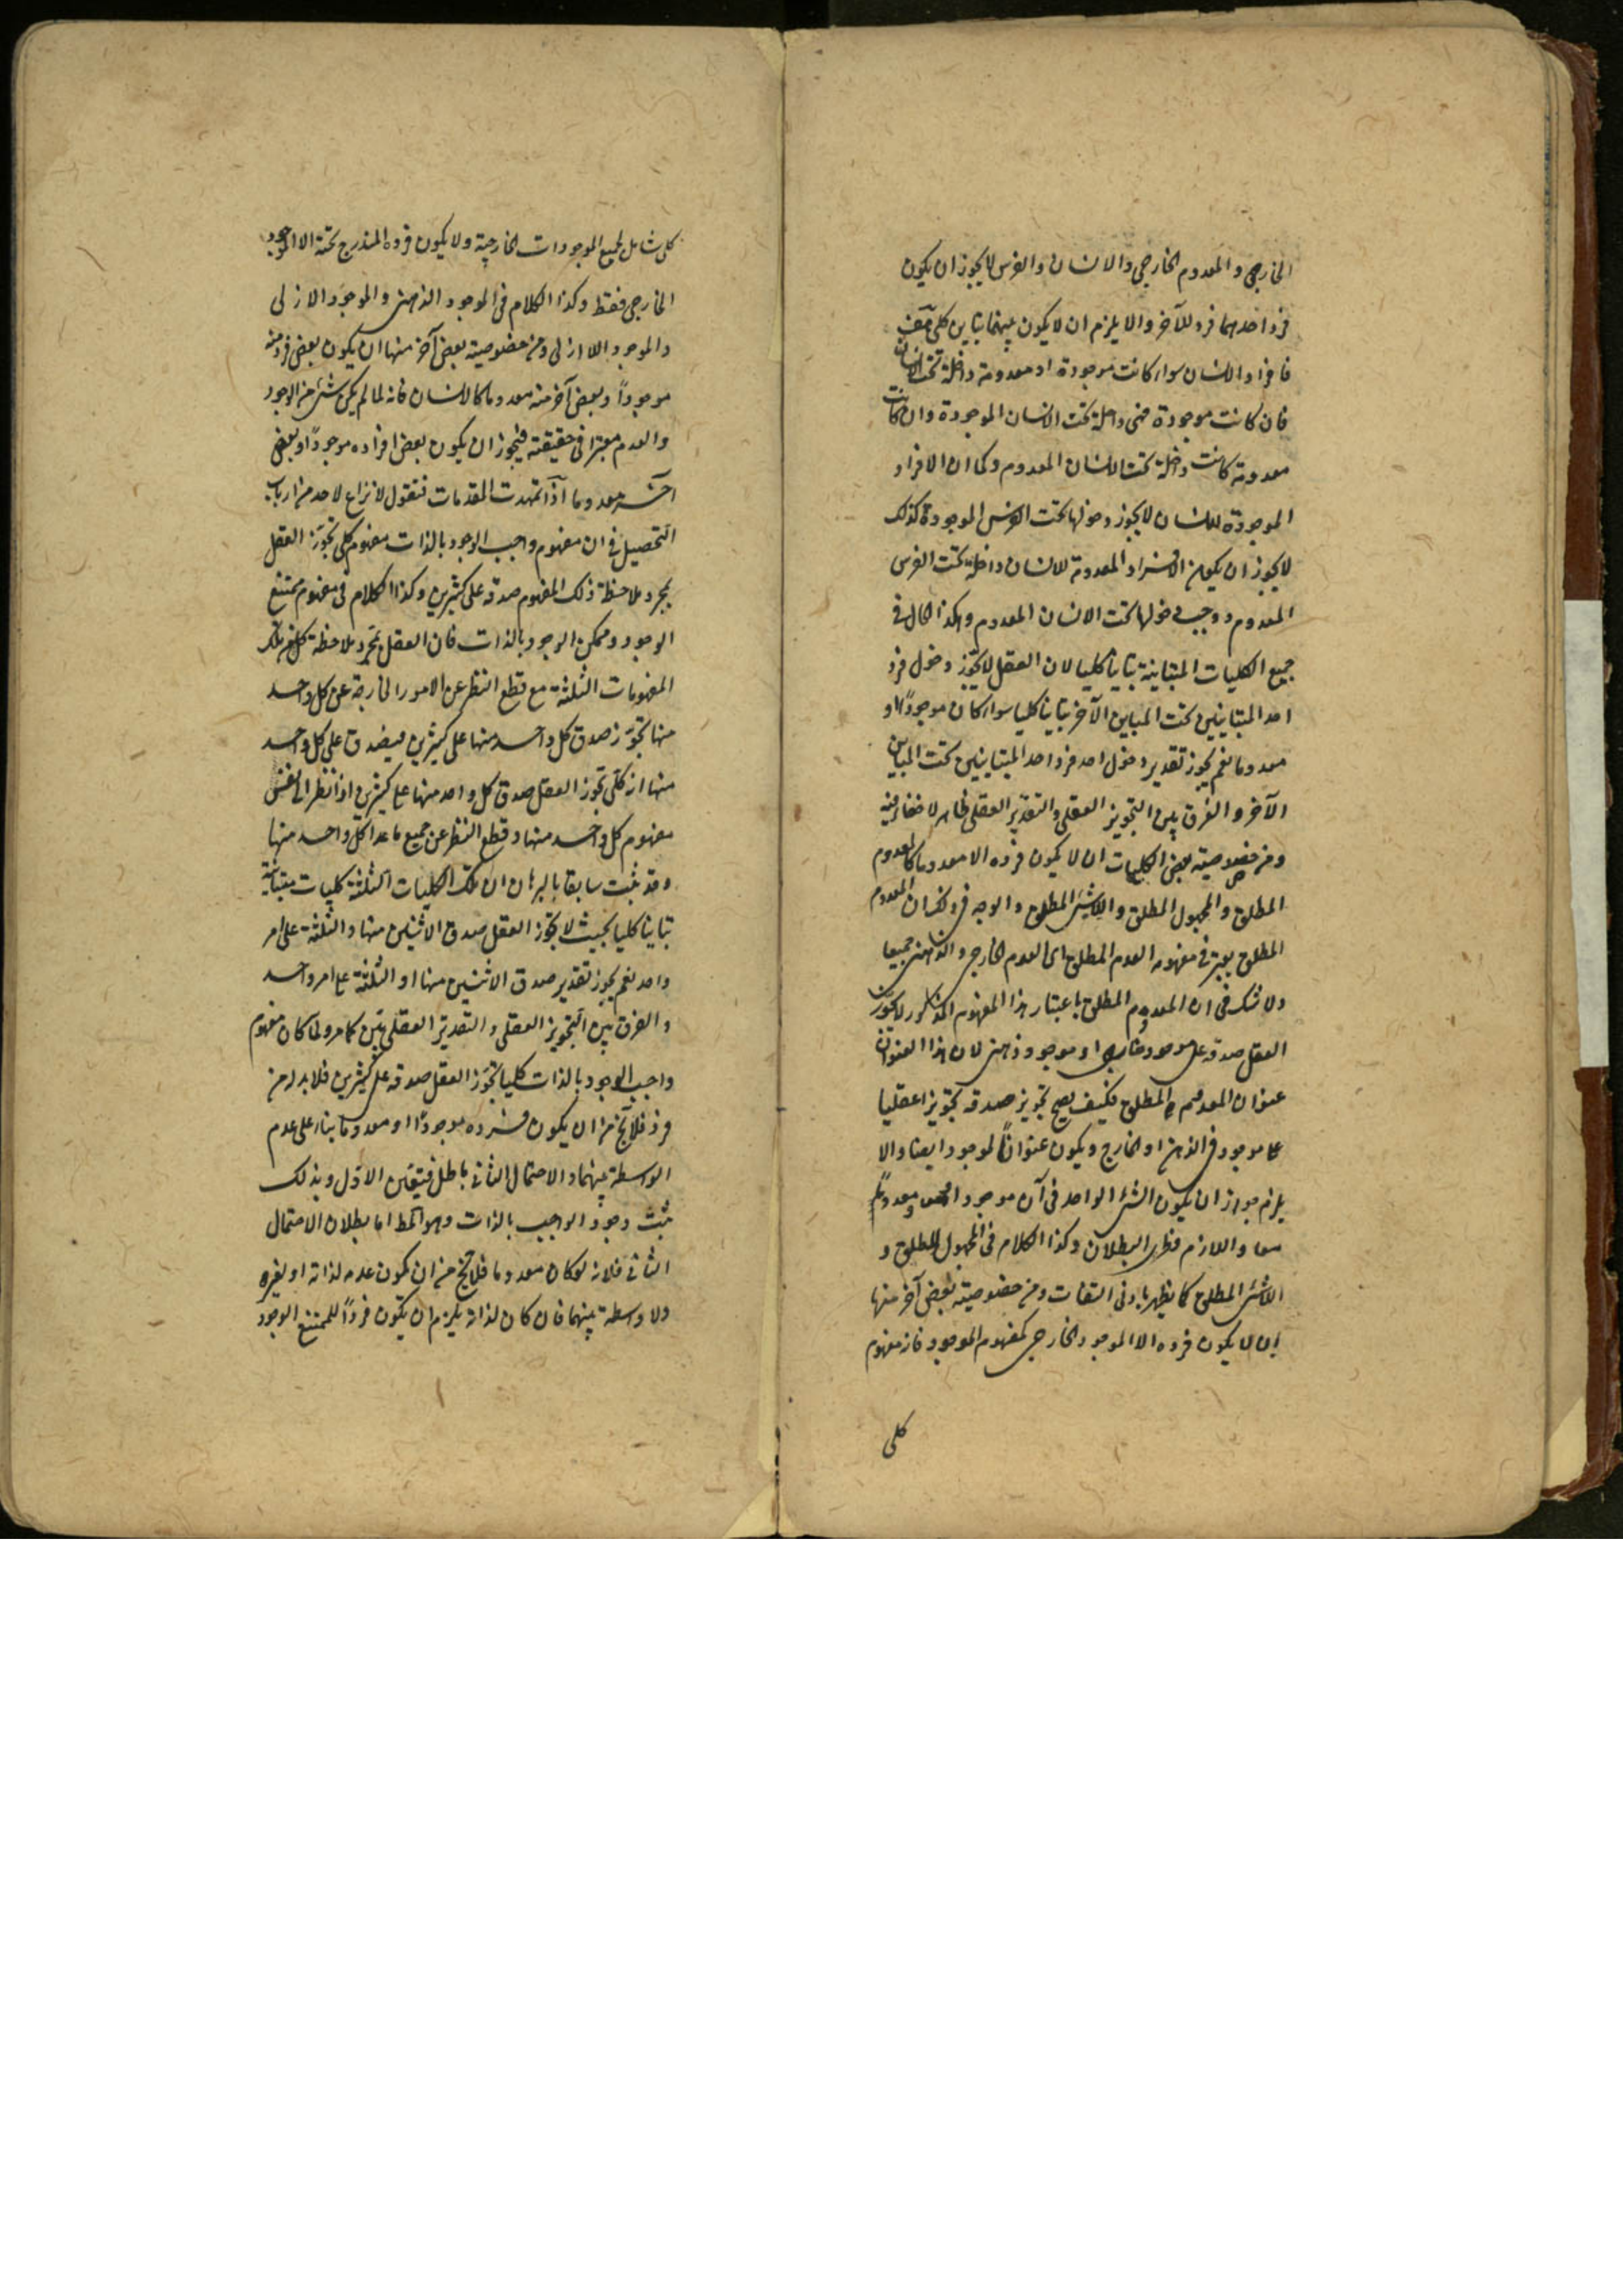 الخارجى والمعدوم الخارجى والانسان والفرس لا يجوز ان يكون
فرد احدهما فرد للآخر والا يلزم ان لا يكون بينهما تباين كلى هف
فافراد الانسان سواء كانت موجودة او معدومة داخلة تحت الانسان
فان كانت موجودة فهى داخلة تحت الانسان الموجودة وان كانت
معدومة كانت داخلة تحت الانسان المعدوم وكما ان الافراد
الموجودة للانسان لا يجوز دخولها تحت الفرس الموجودة كذلك
لا يجوز ان يكون الافراد المعدومة للانسان داخلة تحت الفرس
المعدوم ووجب دخولها تحت الانسان المعدوم وهكذا الحال فى
جميع الكليات المتباينة تباينا كليا لان العقل لا يجوّز دخول فرد
احد المتباينين تحت المباين الآخر تباينا كليا سواء كان موجودًا او
معدوما نعم يجوز تقدير دخول احد فرد احد المتباينين تحت المباين
الآخر والفرق بين التجويز العقلى والتقدير العقلى ظاهر لا خفاء فيه
ومن خصوصية بعض الكليات ان لا يكون فرده الا معدوما كالمعدوم
المطلق والمجهول المطلق واللاشئ المطلق والوجه فى ذلك ان المعدوم
المطلق يعتبر فى مفهومه العدم المطلق اى العدم الخارجى والذهنى جميعا
ولا شك فى ان المعدوم المطلق باعتبار هذا المفهوم المذكور لا يجوّز
العقل صدقه على موجود خارجى او موجود ذهنى لان هذا العنوان
عنوان المعدوم المطلق فكيف يصح تجويز صدقه تجويزا عقليا
على موجود فى الذهن او الخارج ويكون عنوانًا لموجود ايضا والا
يلزم جواز ان يكون الشئ الواحد فى آن موجودا ومعدومًا
معا واللازم فطرى البطلان وكذا الكلام فى المجهول المطلق و
اللاشئ المطلق كما يظهر بادنى التفات ومن خصوصية بعض آخر منها
ان لا يكون فرده الا الموجود الخارجى كمفهوم الموجود فانه مفهوم
كلى
كلى شامل لجميع الموجودات الخارجية ولا يكون فرده المندرج تحته الا الموجود
الخارجى فقط وكذا الكلام فى الموجود الذهنى والموجود الازلى
والموجود اللاازلى ومن خصوصية بعض آخر منها ان يكون بعض فرد منه
موجوداً وبعض آخر منه معدوما كالانسان فانه لما لم يكن شئ من الوجود
والعدم معتبرا فى حقيقته فيجوز ان يكون بعض افراده موجودًا وبعض
آخر معدوما اذا تمهدت المقدمات فنقول لا نزاع لاحد من ارباب
التحصيل فى ان مفهوم واجب الوجود بالذات مفهوم كلى تجوّز العقل
بمجرد ملاحظة ذلك المفهوم صدقه على كثيرين وكذا الكلام فى مفهوم ممتنع
الوجود وممكن الوجود بالذات فان العقل بمجرد ملاحظة كل من تلك
المفهومات الثلثة مع قطع النظر عن الامور الخارجة عن كل واحد
منها تجوّز صدق كل واحد منها على كثيرين فيصدق على كل واحد
منها انه كلى تجوز العقل صدق كل واحد منها على كثيرين اذا نظر الى نفس
مفهوم كل واحد منها وقطع النظر عن جميع ما عدا كل واحد منها
وقد ثبت سابقا بالبرهان ان تلك الكليات الثلثة كليات متباينة
تباينا كليا بحيث لا يجوّز العقل صدق الاثنين منها والثلثة على امر
واحد نعم يجوز تقدير صدق الاثنين منها او الثلثة على امر واحد
والفرق بين التجويز العقلى والتقدير العقلى بيّن كما مر ولما كان مفهوم
واجب الوجود بالذات كليا تجوّز العقل صدقه على كثيرين فلا بد له من
فرد فلا يخ من ان يكون فرده موجودًا او معدوما بناء على عدم
الواسطة بينهما والاحتمال الثانى باطل فيتعين الاول وبذلك
ثبت وجود الواجب بالذات وهو المط اما بطلان الاحتمال
الثانى فلانه لو كان معدوما فلا يخ من ان يكون عدمه لذاته او لغيره
ولا واسطة بينهما فان كان لذاته يلزم ان يكون فردًا للممتنع الوجود